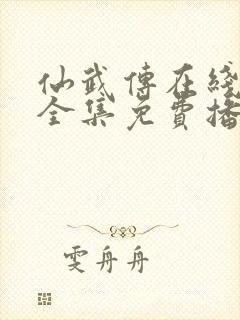 仙武傳在綫
全集免費播
雯舟舟